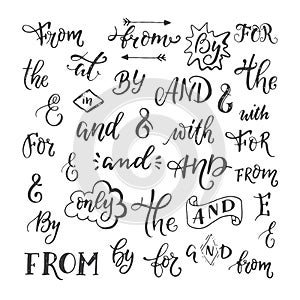 From from By FOR
the at BY AND & the
& in and & with with
For and AND FOR
& only the AND FROM
By & E
FROM by for AND from &